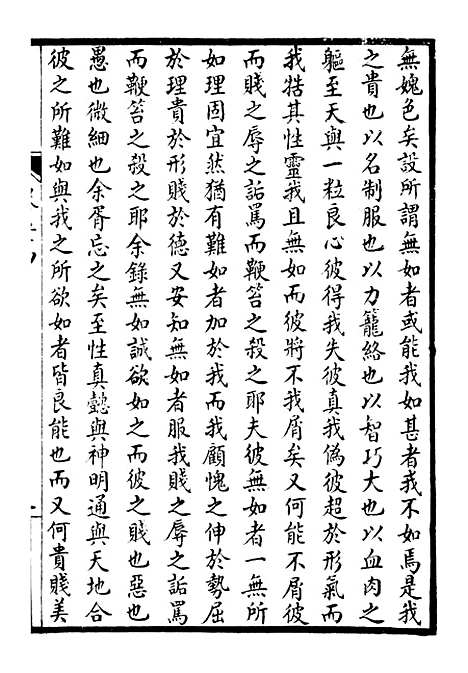 無媿色矣設所謂無如者或能我如甚者我不如焉是我
之貴也以名制服也以力籠絡也以智巧大也以血肉之
軀至天與一粒良心彼得我失彼真我偽彼超於形氣而
我牿其性靈我且無如而彼將不我屑矣又何能不屑彼
而賤之辱之詬罵而鞭笞之殺之耶夫彼無如者一無所
如理固宜然猶有難如者加於我而我顧愧之伸於勢屈
於理貴於形賤於德又安知無如者服我賤之辱之詬罵
而鞭笞之殺之耶余錄無如誠欲如之而彼之賤也惡也
愚也微細也余胥忘之矣至性真懿與神明通與天地合
彼之所難如與我之所欲如者皆良能也而又何貴賤美